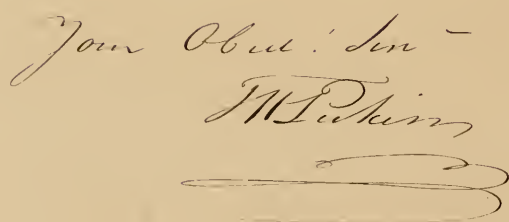 Your Obed: Serv
TH Perkins